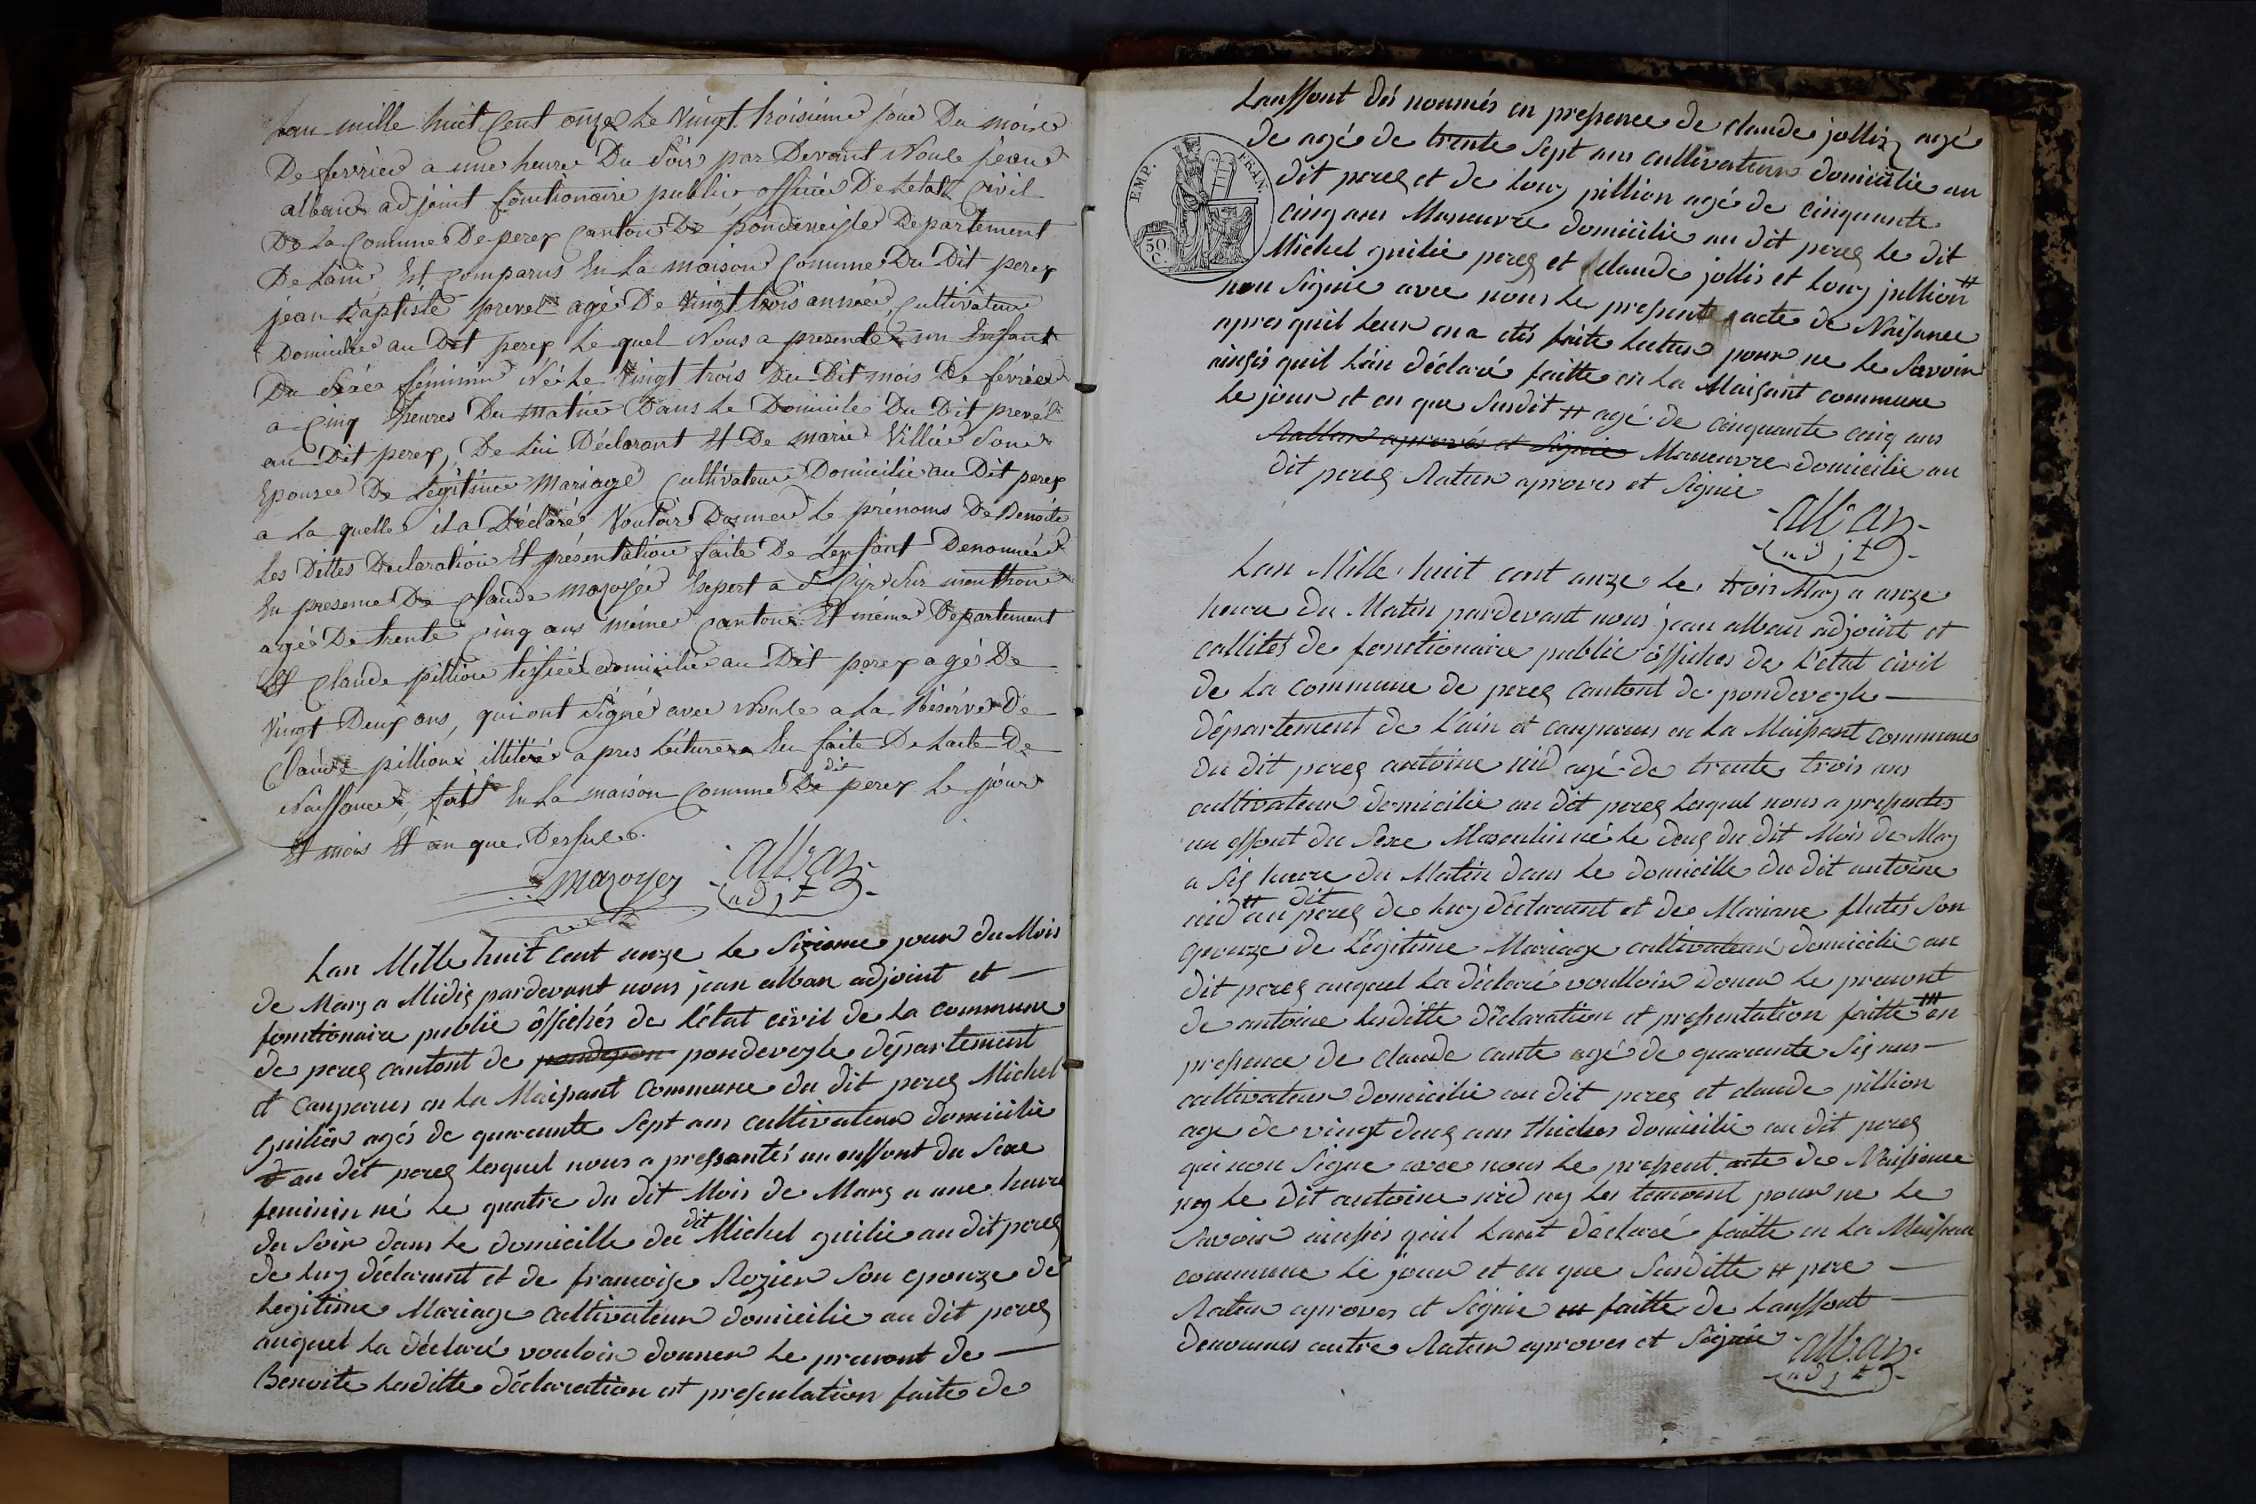 Lan mille huit Cent onze Le Vingt troisieme jour Du mois
De fevrier a une heure Du Soir par Devant Nous jean
alban adjoint fonctionaire public, officier De Letat Civil
De La Comune De perex Canton De pondeveyle Departement
De Lain, Est Comparus En La maison Comune Du Dit perex
jean Baptiste prevel agé De Vingt trois année, Cultivateur
Domicilié au Dit perex Le quel Nous a presenté un Enfant
Du Sexe féminin Née Le Vingt trois Du Dit mois De février
a Cinq heures Du matin Dans Le Domicile Du Dit prevel
au Dit perex, De Lui Déclarant Et De marie Villié Son
Epouse De Légitime mariage Cultivateur Domicilié au Dit perex
a La quelle il a Déclaré Vouloir Donner Le prénoms De Benoite
Les Dittes Declaration Et présentation faite De Lenfant Denomée
En presence De Claude mazoyer Expert a St Cyr Sur menthon
agé De trente Cinq ans même Canton Et même Departement
Et Claude pillion tissier domicilié au Dit perex agé De
Vingt Deux ans, qui ont Signé avec Nous a La Réserve De
Claude pillion illitéré apres Lecture En faite De Lacte De
Naissance, fait En La maison Comune De dit perex Le jour
Et mois Et an que Dessus.
mazoyer alban
adjt
Lan Mille huit cent onze le Sizieme jour du Mois
de Mars a Midis pardevant nous jean alban adjoint et
fonctionaire public officiés de l'état civil de la commune
de pereg cantont de pondeveyle département
et conparus en la Maisont Commune du dit pereg Michel
guilier agés de quarente Sept ans cultivateur domicilié
au dit pereg lequel nous a presantés un enffont du Sexe
feminin né le quatre du dit Mois de Mars a une heure
du Soir dans le domicille du dit Michel guilié au dit pereg
de luy déclarant et de francoise Rozier Son epouze de
legitime Mariage cultivateur domicilié au dit pereg
auquel la déclaré vouloir donner le prenont de
Benoite lesditte déclaration et presentation faite de
Lanffont dés nommés en presence de claude jollis agé
de agé de trente Sept ans cultivateur domicilié au
dit pereg et de louy pillion agé de cinquante
cinq ans Maneuvre domicilié au dit pereg le dit
Michel guilié pereg et claude jollis et louy pillion #
non Signie avec nous le present acte de Naisance
apres quil leur en a etés faite lecture pour ne le Savoir
ainsis quil lon déclaré faitte en la Maisont commune
le jour et en que Susdit # agé de cinquante cinq ans
Maneuvre domicilié au
dit pereg Rature aprouves et Signie
alban
adjt
Lan Mille huit cent onze le trois May a onze
heure du Matin pardevant nous jean alban adjoint et
callités de fonctionaire public officiés de l'état civil
de la commune de pereg cantont de pondeveyle
département de l'ain et conparus en la Maisont commune
du dit pereg antoine nid agé de trente trois ans
cultivateur domicilié au dit pereg lequel nous a presentes
un effont du Sexe Masculin né le deux du dit Mois de May
a Six heure du Matin dans le domicille du dit antoine
nid # au dit pereg de luy déclarant et de Mariane flutes Son
epouze de Légitime Mariage cultivateur domicilié au
dit pereg auquel la déclaré voulloir doner le prenont
de antoine lesditte déclaration et presentation faitte ### en
presence de claude cante agé de quarante Six ans
cultivateur domicilié au dit pereg et claude pillion
age de vingt deux ans thisies domicilié au dit pereg
qui non Signe avec nous le present acte de Naisance
ny le dit antoine nid ny les temoint pour ne le
Savoir ainssis quil lont déclaré faitte en la Maison
commune le jour et en que Susditte # pere
Rature aprouves et Signie ### faitte de lanffont
denommes autre Rature aprouves et Signie
alban
adjt
EMP. FRAN.
50 C.